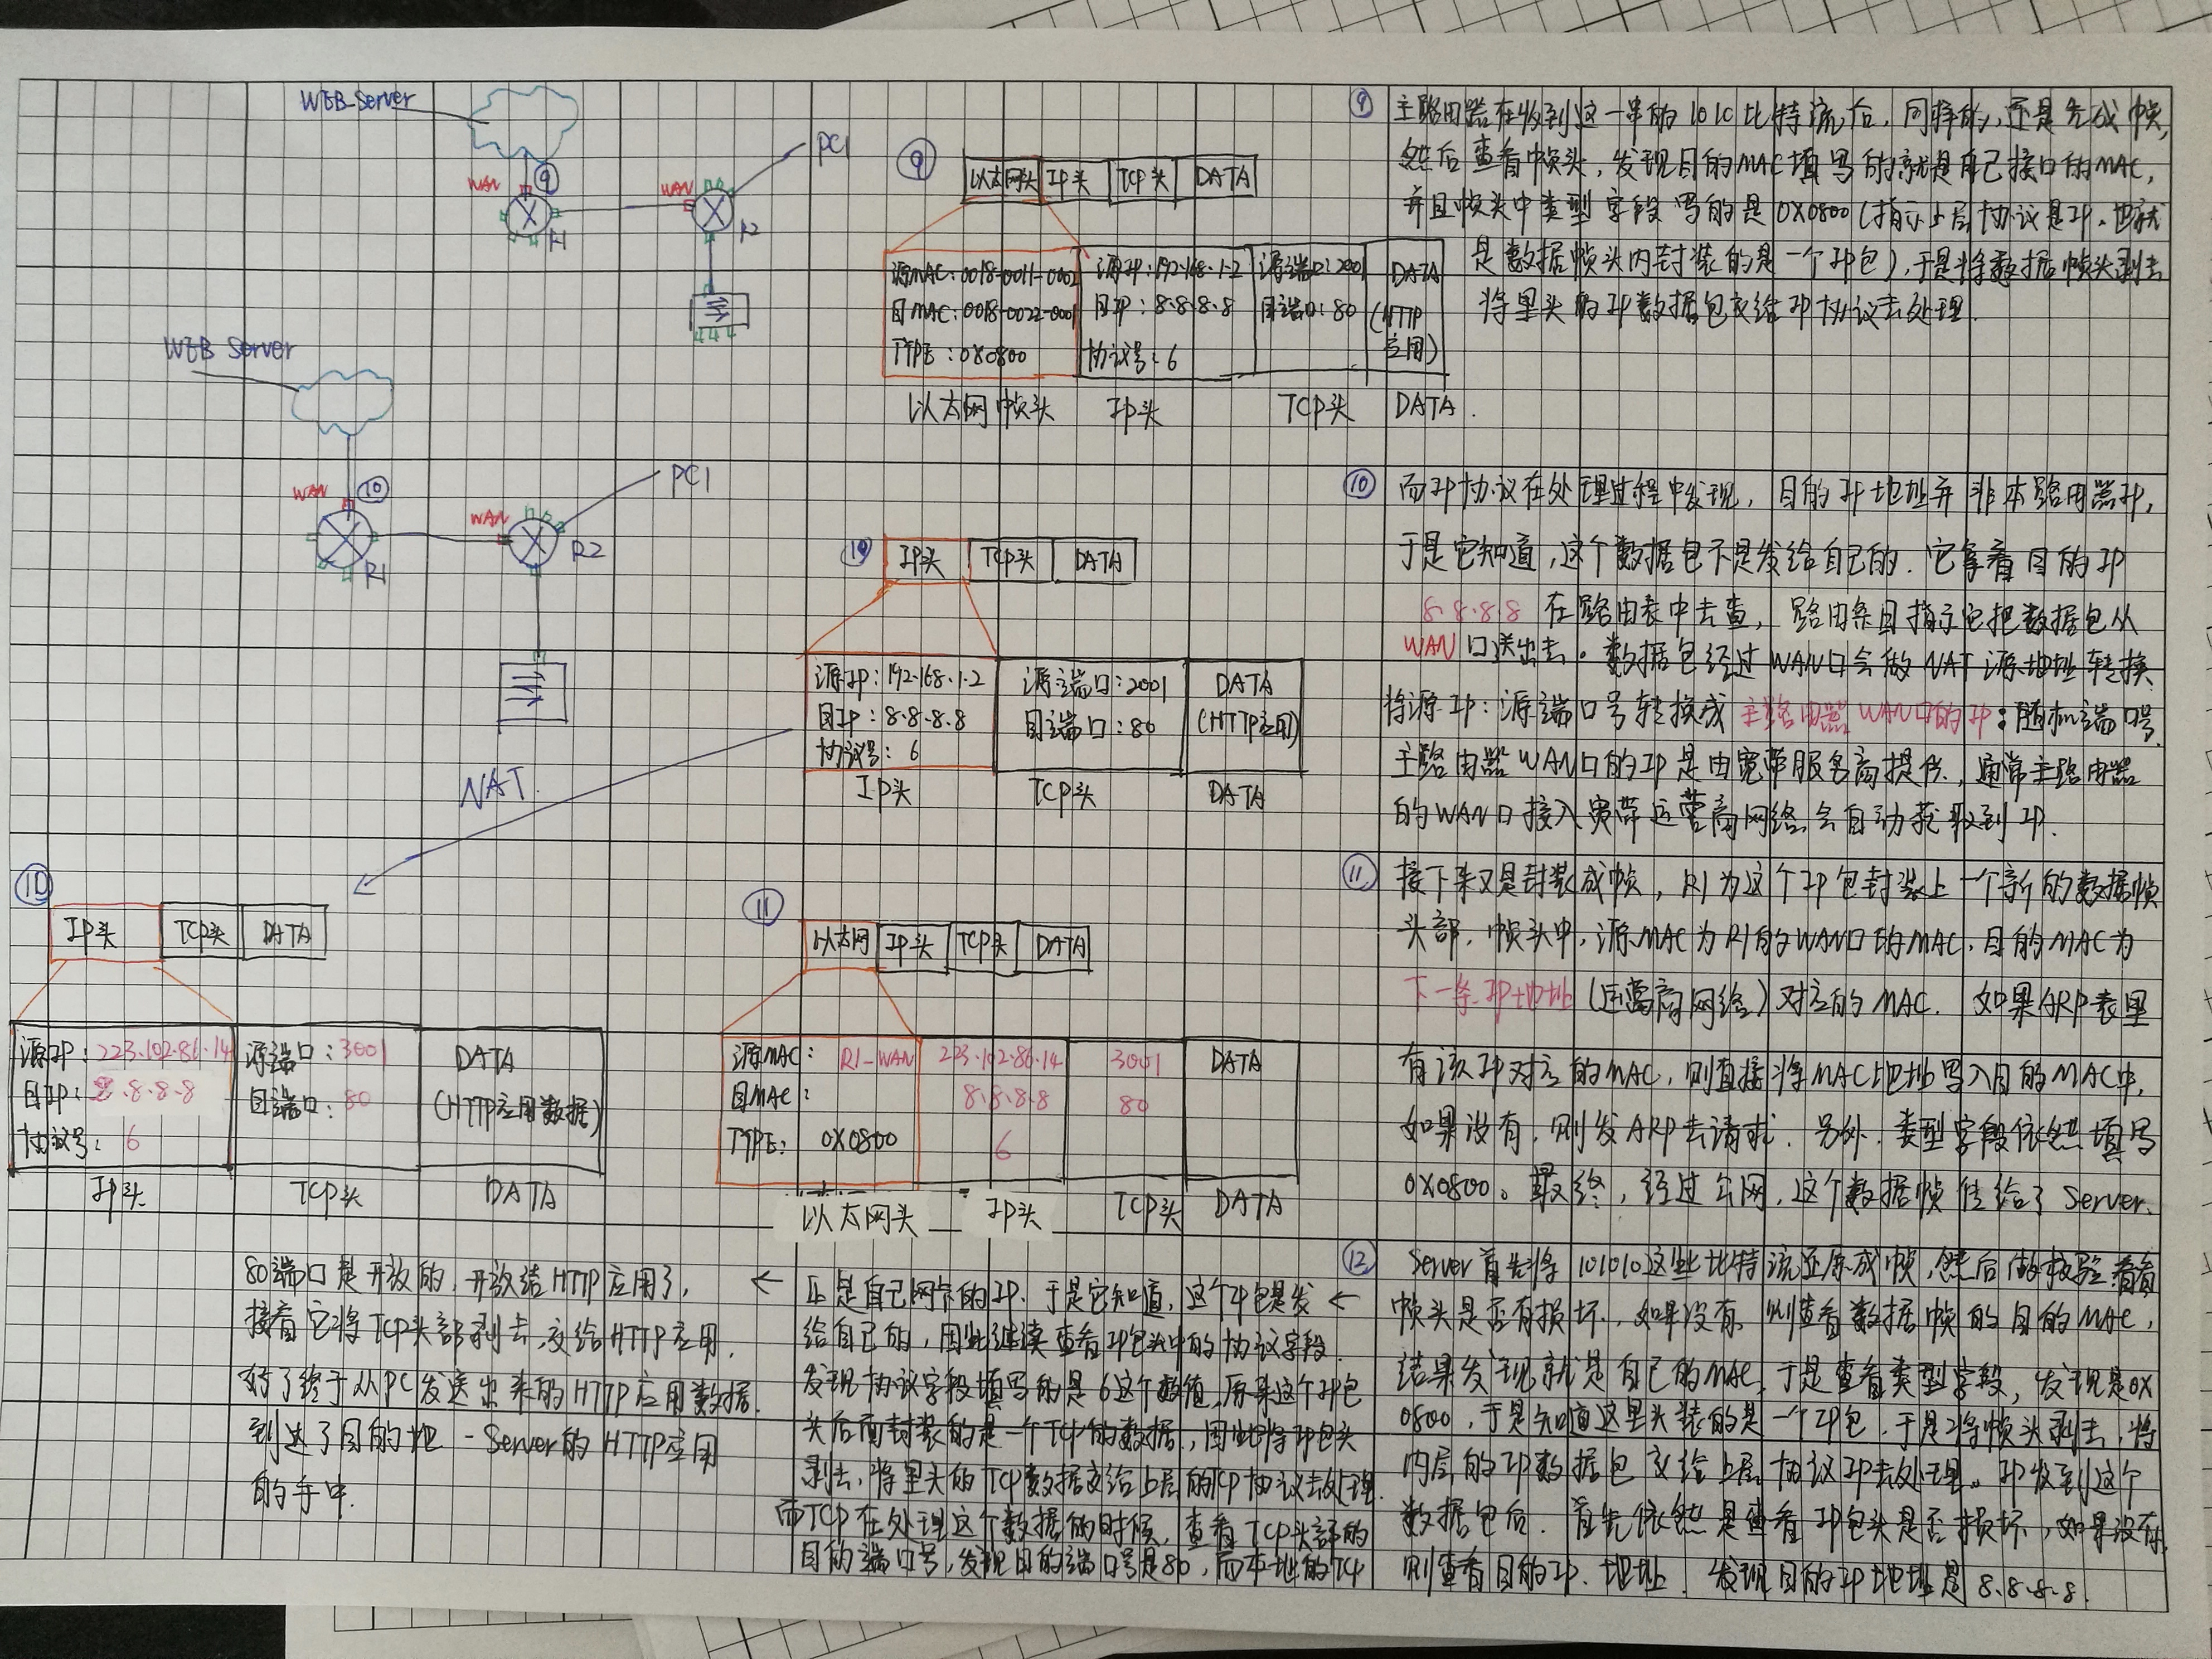 WEB-Server
WAN
⑨
WAN
PC1
R1
R2
⑨
以太网头 IP头 TCP头 DATA
源MAC:0018-0011-0002 源IP:192.168.1.2 源端口:2001 DATA
目MAC:0018-0022-0001 目IP:8.8.8.8 目端口:80 (HTTP
TYPE:0X0800 协议号:6 应用)
以太网帧头 IP头 TCP头 DATA.
⑨ 主路由器在收到这一串的1010比特流后,同样的,还是先成帧,
然后查看帧头,发现目的MAC填写的就是自己接口的MAC,
并且帧头中类型字段写的是0X0800(指示上层协议是IP,也就
是数据帧头内封装的是一个IP包),于是将数据帧头剥去
将里头的IP数据包交给IP协议去处理.
WEB Server
WAN
⑩
WAN
PC1
R1
R2
⑩
IP头 TCP头 DATA
源IP:192.168.1.2 源端口:2001 DATA
目IP:8.8.8.8 目端口:80 (HTTP应用)
协议号:6
IP头 TCP头 DATA
NAT.
⑩ 而IP协议在处理过程中发现,目的IP地址并非本路由器IP,
于是它知道,这个数据包不是发给自己的.它拿着目的IP
8.8.8.8在路由表中去查,路由条目指示它把数据包从
WAN口送出去。数据包经过WAN口会做NAT源地址转换
将源IP:源端口号转换成主路由器WAN口的IP:随机端口号.
主路由器WAN口的IP是由宽带服务商提供,通常主路由器
的WAN口接入宽带运营商网络会自动获取到IP.
⑩
IP头 TCP头 DATA
源IP:223.102.86.14 源端口:3001 DATA
目IP:8.8.8.8 目端口:80 (HTTP应用数据)
协议号:6
IP头 TCP头 DATA
⑪
以太网 IP头 TCP头 DATA
源MAC: R1-WAN 223.102.86.14 3001 DATA
目MAC: 8.8.8.8 80
TYPE: 0X0800 6
以太网头 IP头 TCP头 DATA
⑪ 接下来又是封装成帧,R1为这个IP包封装上一个新的数据帧
头部,帧头中,源MAC为R1的WAN口的MAC,目的MAC为
下一条IP地址(运营商网络)对应的MAC. 如果ARP表里
有该IP对应的MAC,则直接将MAC地址写入目的MAC中,
如果没有,则发ARP去请求.另外,类型字段依然填写
0X0800。最终,经过公网,这个数据帧传给了Server.
⑫ Server首先将101010这些比特流还原成帧,然后做校验看看
帧头是否有损坏,如果没有则查看数据帧的目的MAC,
结果发现就是自己的MAC,于是查看类型字段,发现是0X
0800,于是知道这里头装的是一个IP包,于是将帧头剥去,将
内层的IP数据包交给上层协议IP去处理。IP收到这个
数据包后.首先依然是查看IP包头是否损坏,如果没有,
则查看目的IP.地址.发现目的IP地址是8.8.8.8.
← 正是自己网卡的IP.于是它知道,这个IP包是发 ←
给自己的,因此继续查看IP包头中的协议字段.
发现协议字段填写的是6这个数值,原来这个IP包
头后面封装的是一个TCP的数据,因此将IP包头
剥去,将里头的TCP数据交给上层的TCP协议去处理.
而TCP在处理这个数据的时候,查看TCP头部的
目的端口号,发现目的端口号是80,而本地的TCP
80端口是开放的,开放给HTTP应用了,
接着它将TCP头部剥去,交给HTTP应用.
好了终于从PC发送出来的HTTP应用数据.
到达了目的地-Server的HTTP应用
的手中.